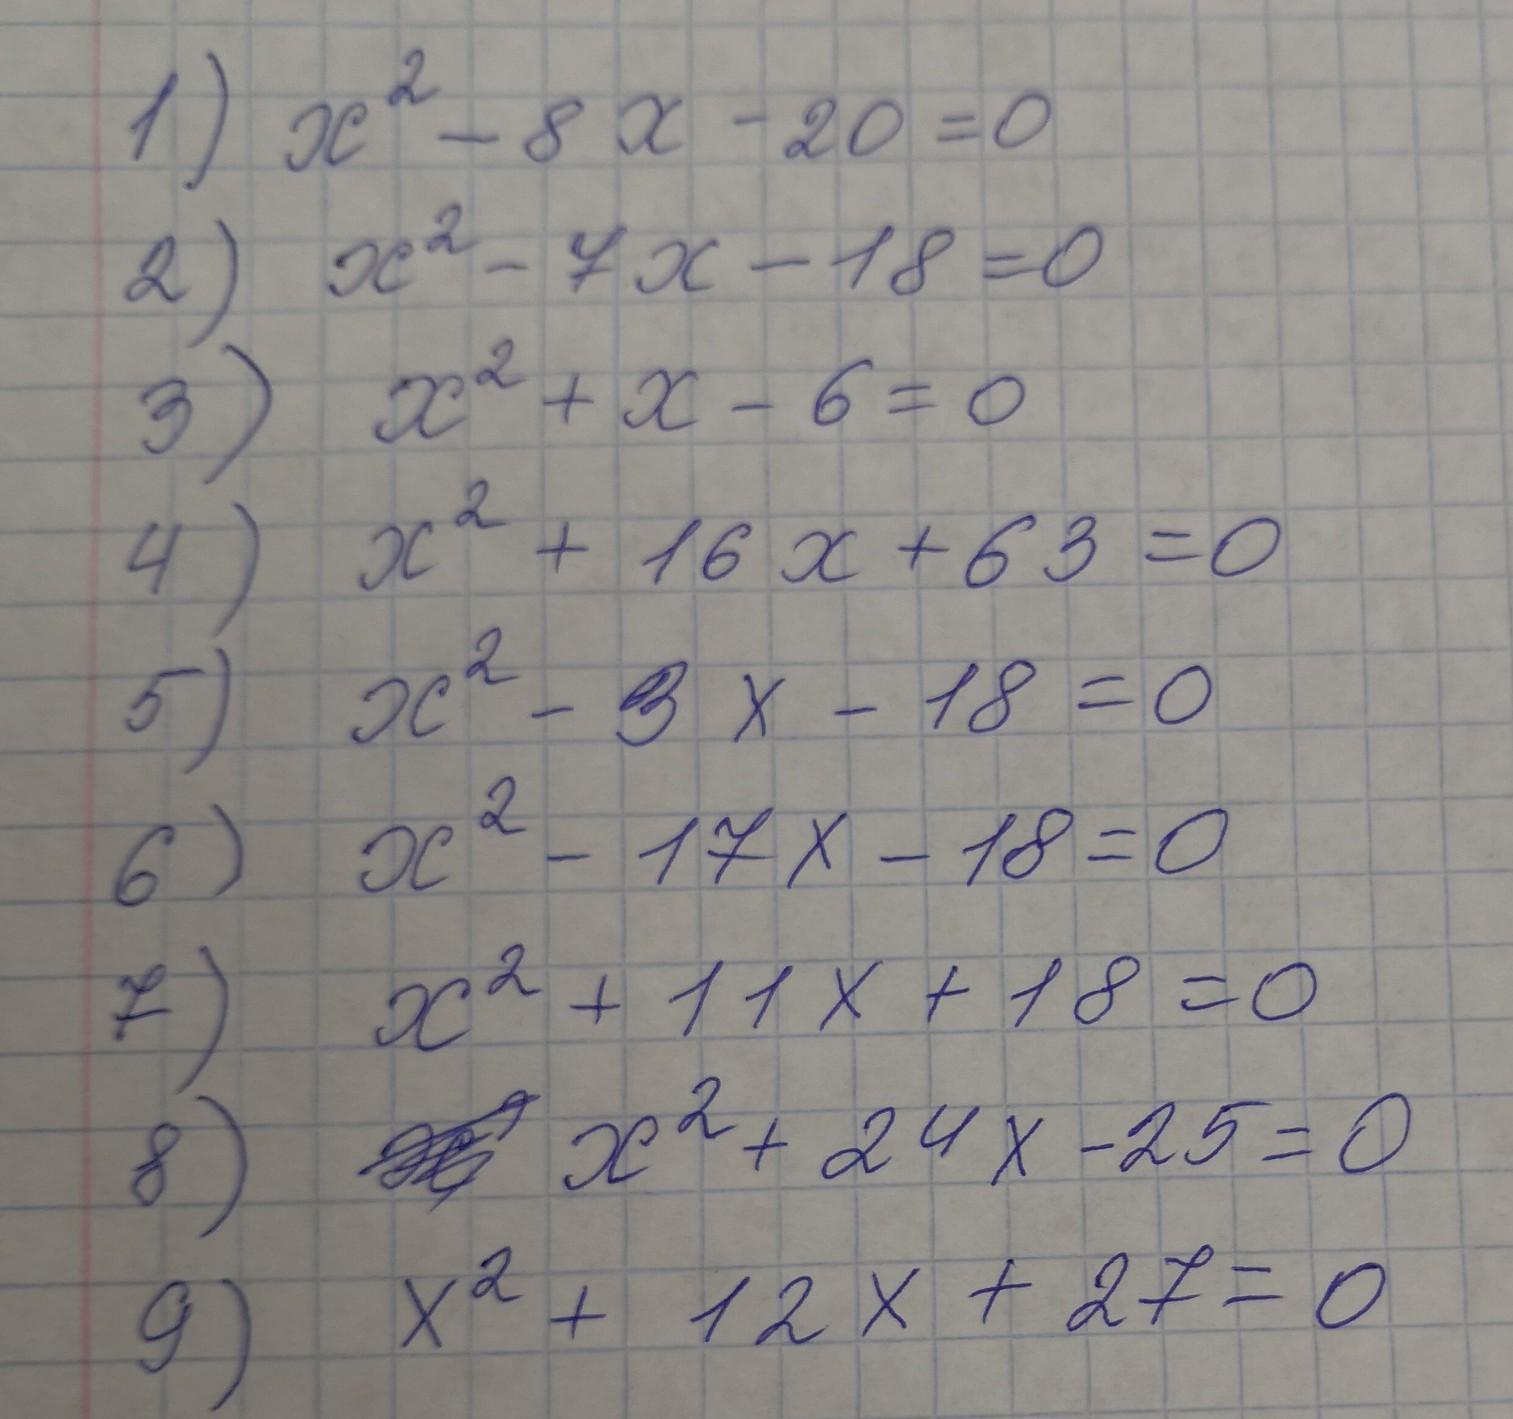 1) x² - 8x - 20 = 0
2) x² - 7x - 18 = 0
3) x² + x - 6 = 0
4) x² + 16x + 63 = 0
5) x² - 3x - 18 = 0
6) x² - 17x - 18 = 0
7) x² + 11x + 18 = 0
8) x² + 24x - 25 = 0
9) x² + 12x + 27 = 0